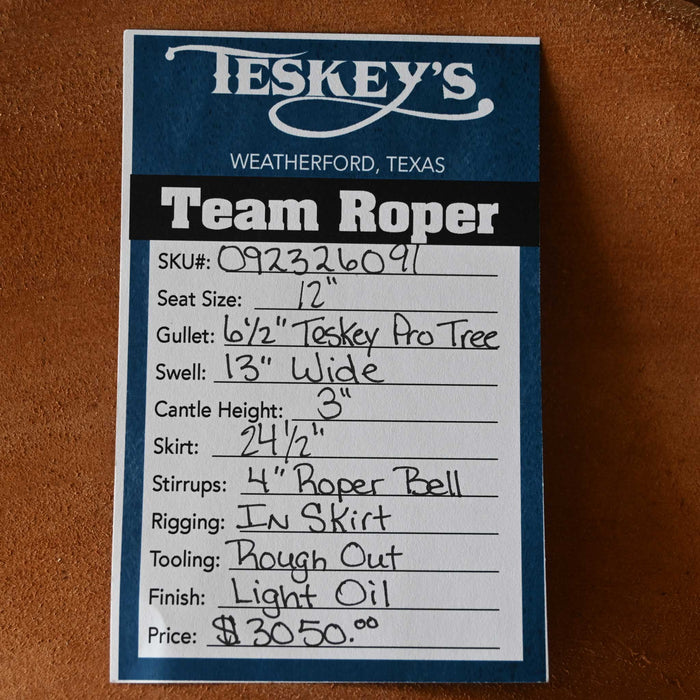 TESKEY'S
WEATHERFORD, TEXAS
Team Roper
SKU#: 092326091
Seat Size: 12"
Gullet: 6 1/2" Teskey Pro Tree
Swell: 13" Wide
Cantle Height: 3"
Skirt: 24 1/2"
Stirrups: 4" Roper Bell
Rigging: In Skirt
Tooling: Rough Out
Finish: Light Oil
Price: $3050.00